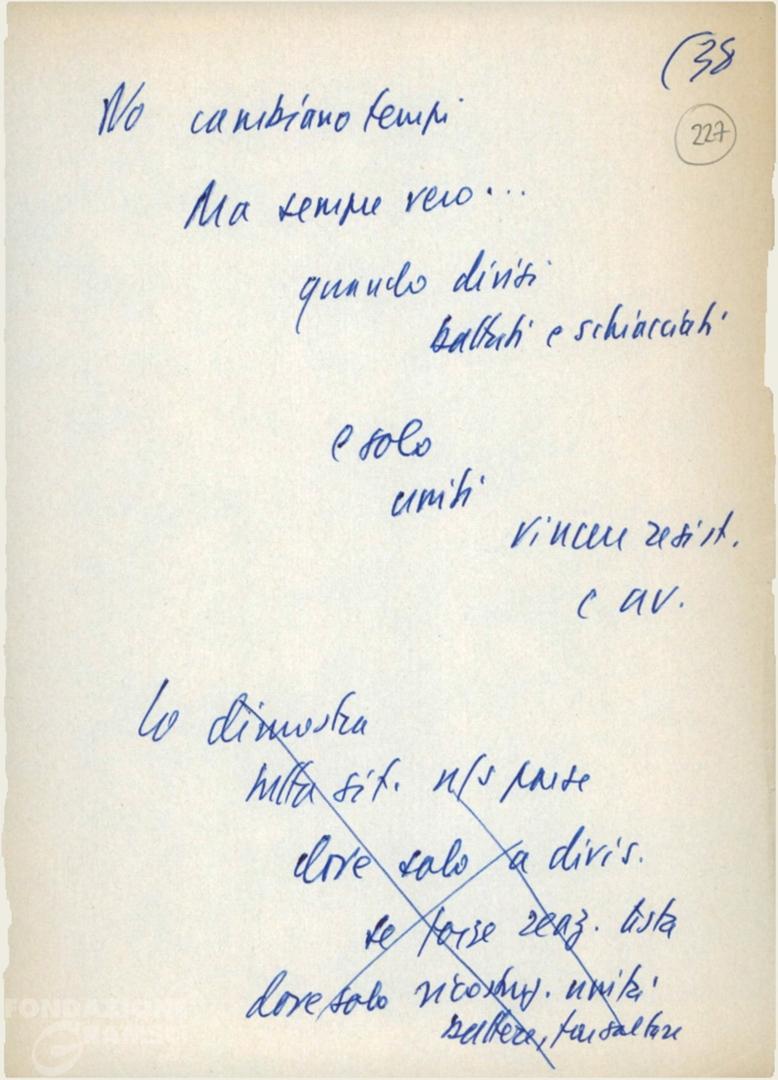 (38
227
No cambiano tempi
Ma sempre vero...
quando divisi
battuti e schiacciati
e solo
uniti
vincere resist.
e av.
lo dimostra
tutta sit. n/s paese
dove solo a divis.
se forze reaz. testa
dove solo ricostruz. unità
battere, far saltare
FONDAZIONE
GRAMSCI